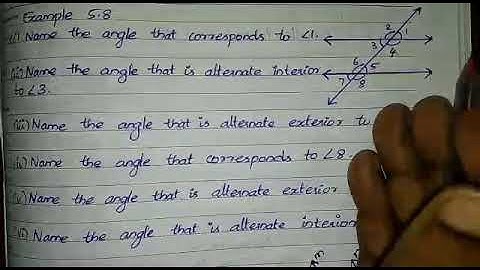 Example 5.8
(i) Name the angle that corresponds to ∠1.
(ii) Name the angle that is alternate interior
to ∠3.
(iii) Name the angle that is alternate exterior to
(iv) Name the angle that corresponds to ∠8
(v) Name the angle that is alternate exterior
(vi) Name the angle that is alternate interior
2 1
3 4
6 5
7 8